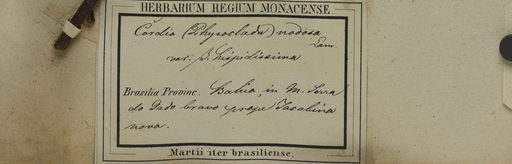 HERBARIUM REGIUM MONACENSE.
Cordia (Physoclada) nodosa
Lam.
var. β. hispidissima
Brasilia Provinc. Bahia, in M. Serra
do Gado bravo prope Jacobina
nova.
Martii iter brasiliense.